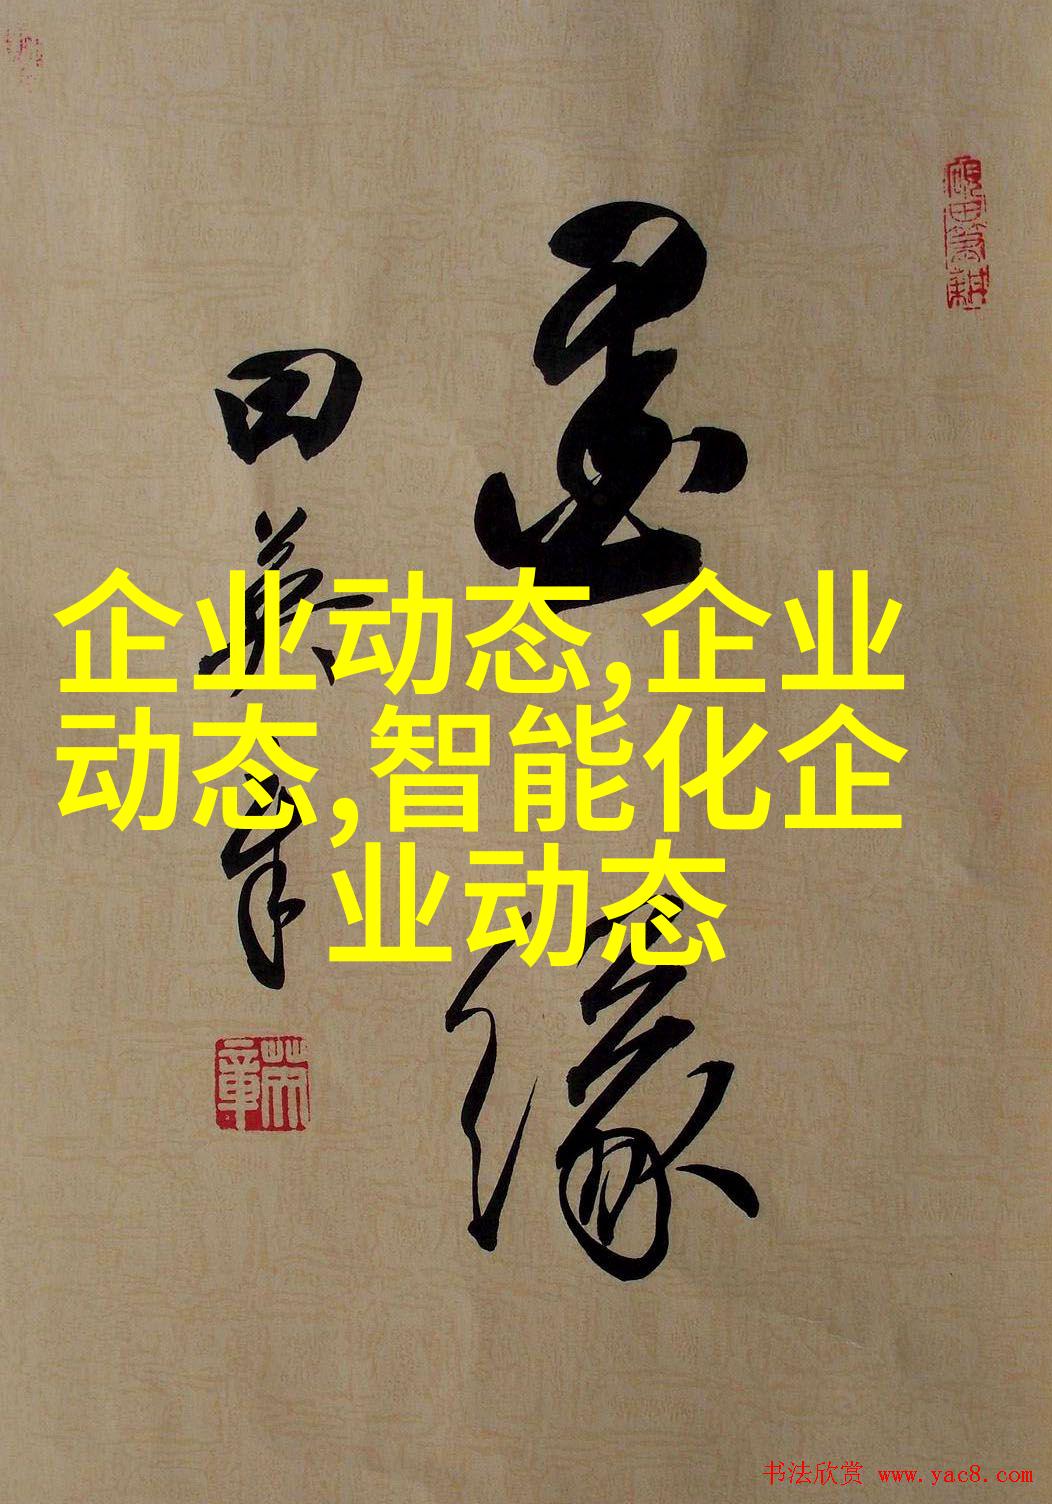 墨缘
田英章
企业动态,企业
动态,智能化企
业动态
书法欣赏 www.yac8.com